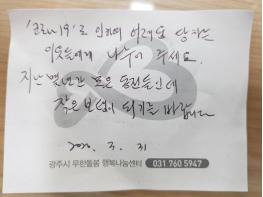 '코로나19'로 인하여 어려움 당하는
이웃들에게 나누어 주세요.
지난 몇년간 모은 동전들인데
작은 보탬이 되기를 바랍니다
2020. 3. 31
광주시 무한돌봄 행복나눔센터 031 760 5947